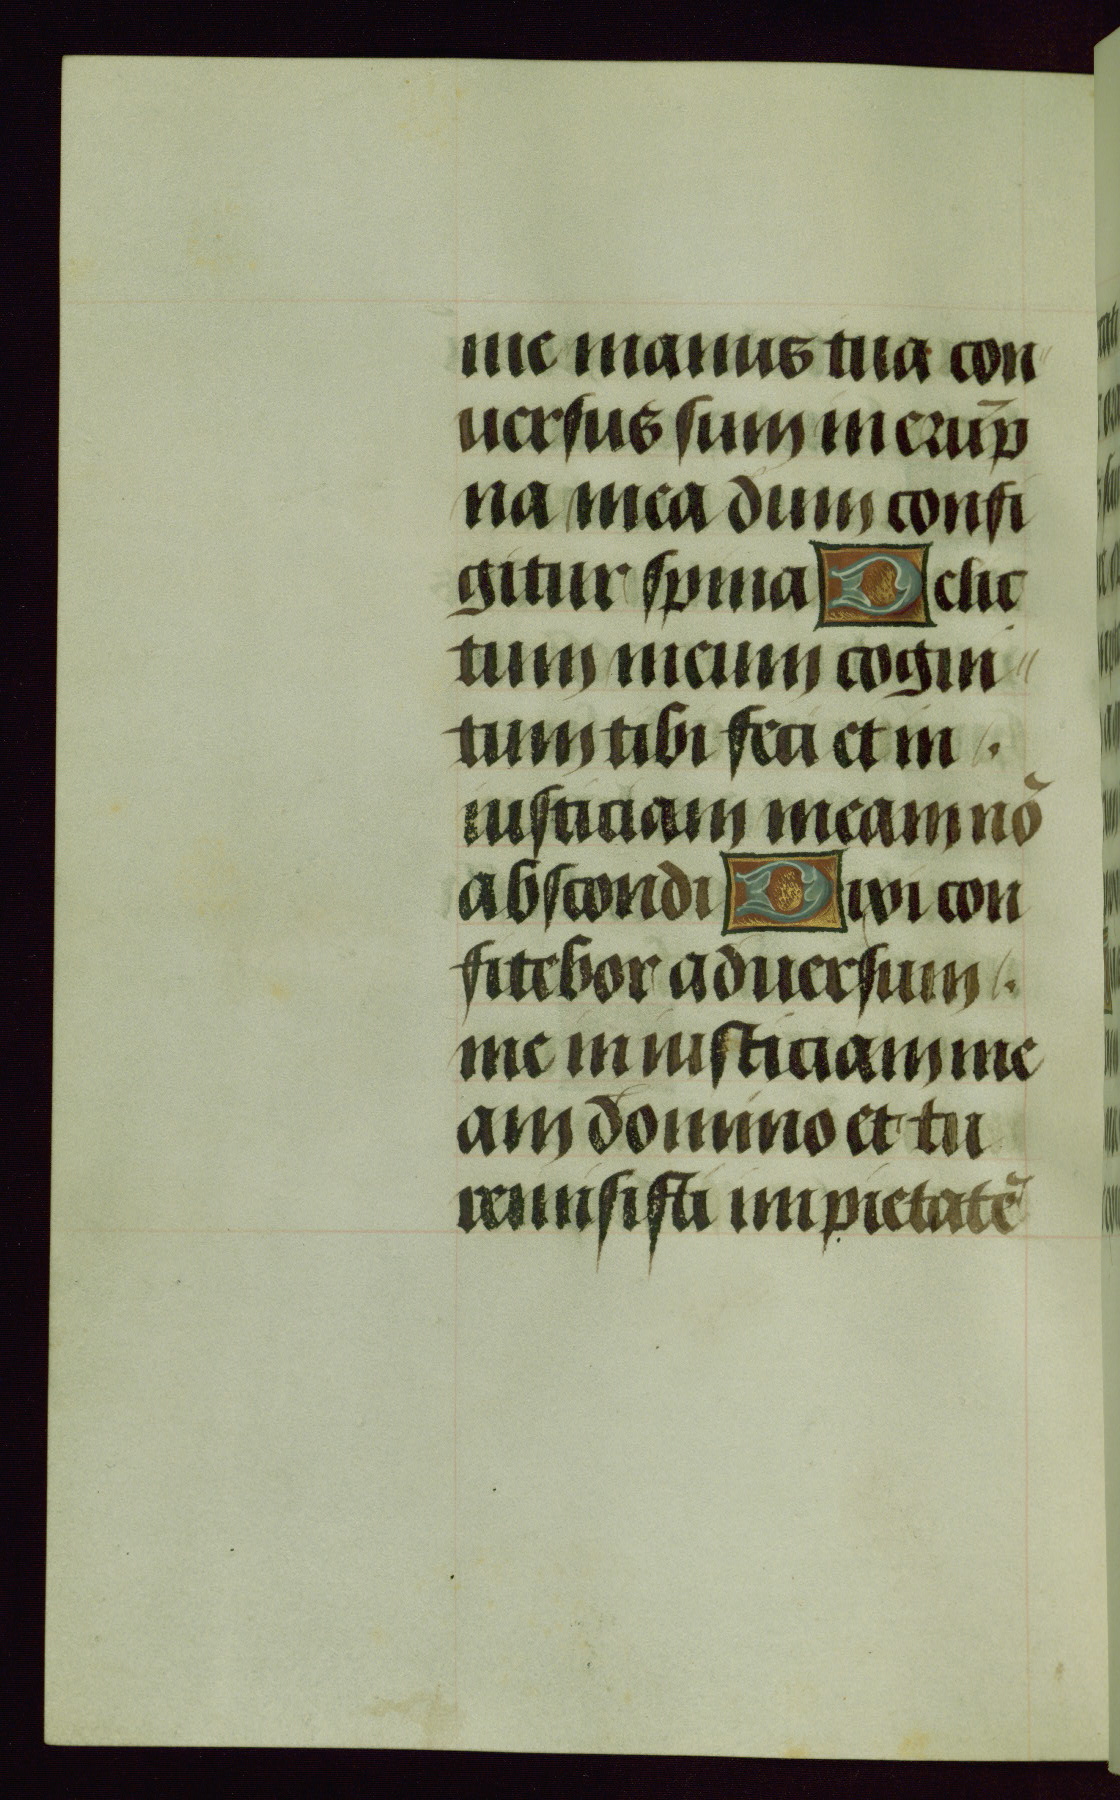 me manus tua con
uersus sum in erũp
na mea dum confi
gitur spina Delic
tum meum cogni
tum tibi feci et in
iusticiam meam nõ
abscondi Dixi con
fitebor aduersum
me iniusticiam me
am domino et tu
remisisti impietatẽ